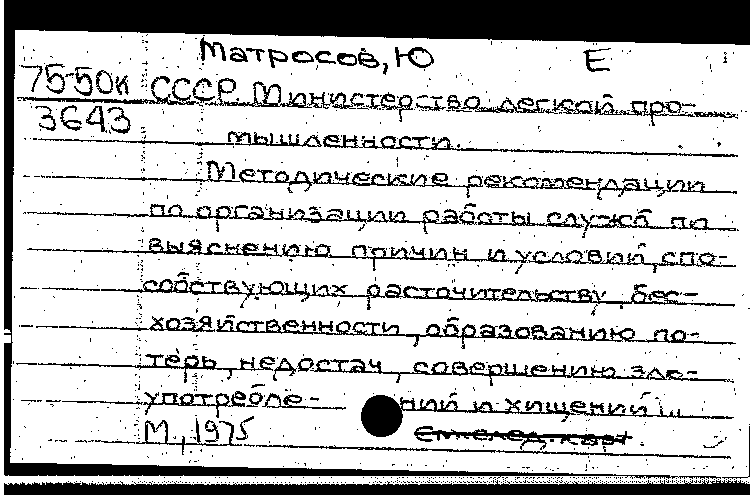 Матросов, Ю Е
75-50к СССР. Министерство легкой про-
3643 мышленности.
Методические рекомендации
по организации работы служб по
выяснению причин и условий, спо-
собствующих расточительству, бес-
хозяйственности, образованию по-
терь, недостач, совершению зло-
употребле- ний и хищений ...
М., 1975